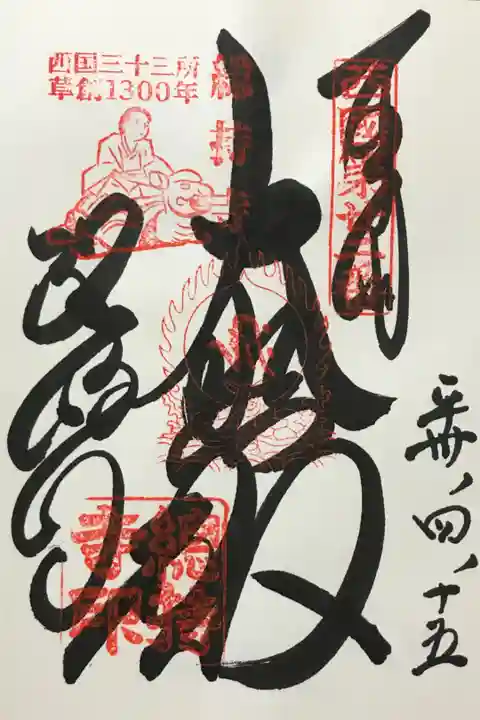 西國第廿二番
平卅、四、十五
大悲殿
總持寺
西国三十三所
草創1300年
總持寺印